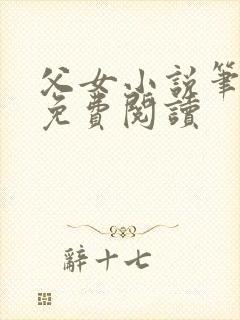 父女小説筆
免費閱讀
辭十七